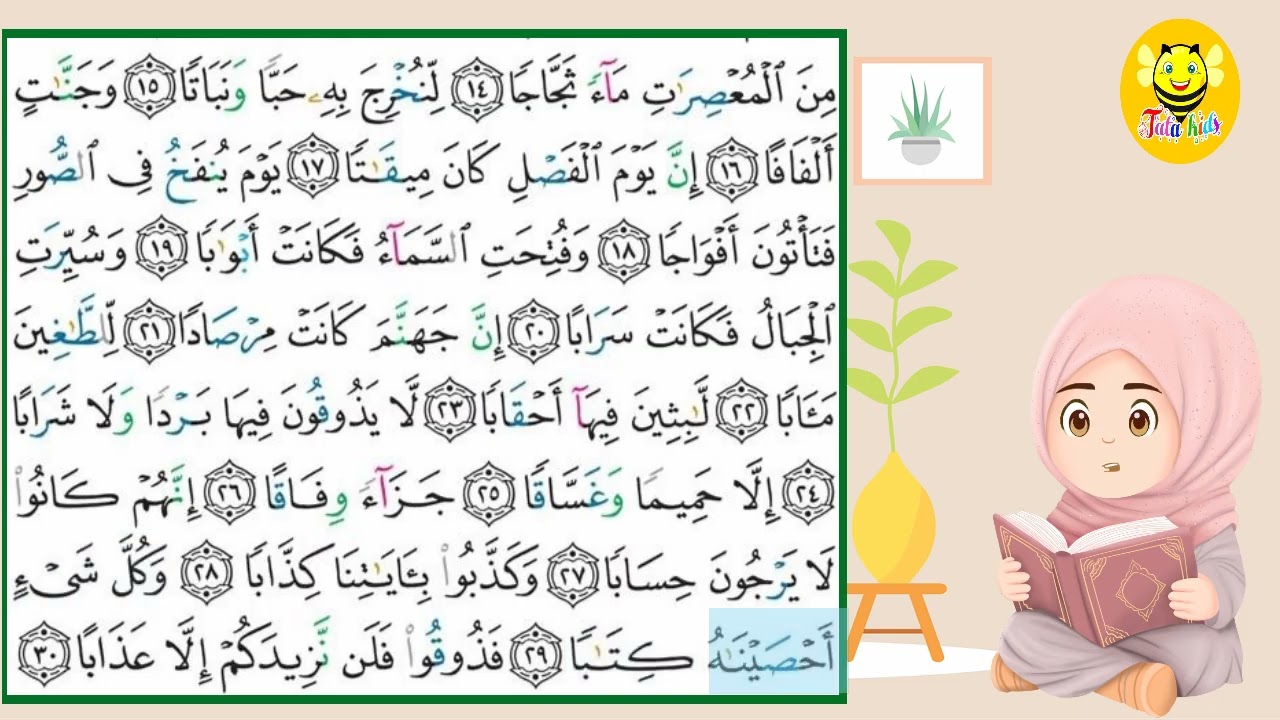 مِنَ ٱلْمُعْصِرَٰتِ مَآءً ثَجَّاجًا ١٤ لِّنُخْرِجَ بِهِۦ حَبًّا وَنَبَاتًا ١٥ وَجَنَّٰتٍ
أَلْفَافًا ١٦ إِنَّ يَوْمَ ٱلْفَصْلِ كَانَ مِيقَٰتًا ١٧ يَوْمَ يُنفَخُ فِى ٱلصُّورِ
فَتَأْتُونَ أَفْوَاجًا ١٨ وَفُتِحَتِ ٱلسَّمَآءُ فَكَانَتْ أَبْوَٰبًا ١٩ وَسُيِّرَتِ
ٱلْجِبَالُ فَكَانَتْ سَرَابًا ٢٠ إِنَّ جَهَنَّمَ كَانَتْ مِرْصَادًا ٢١ لِّلطَّٰغِينَ
مَـَٔابًا ٢٢ لَّٰبِثِينَ فِيهَآ أَحْقَابًا ٢٣ لَّا يَذُوقُونَ فِيهَا بَرْدًا وَلَا شَرَابًا
٢٤ إِلَّا حَمِيمًا وَغَسَّاقًا ٢٥ جَزَآءً وِفَاقًا ٢٦ إِنَّهُمْ كَانُوا۟
لَا يَرْجُونَ حِسَابًا ٢٧ وَكَذَّبُوا۟ بِـَٔايَٰتِنَا كِذَّابًا ٢٨ وَكُلَّ شَىْءٍ
أَحْصَيْنَٰهُ كِتَٰبًا ٢٩ فَذُوقُوا۟ فَلَن نَّزِيدَكُمْ إِلَّا عَذَابًا ٣٠
Tata kids